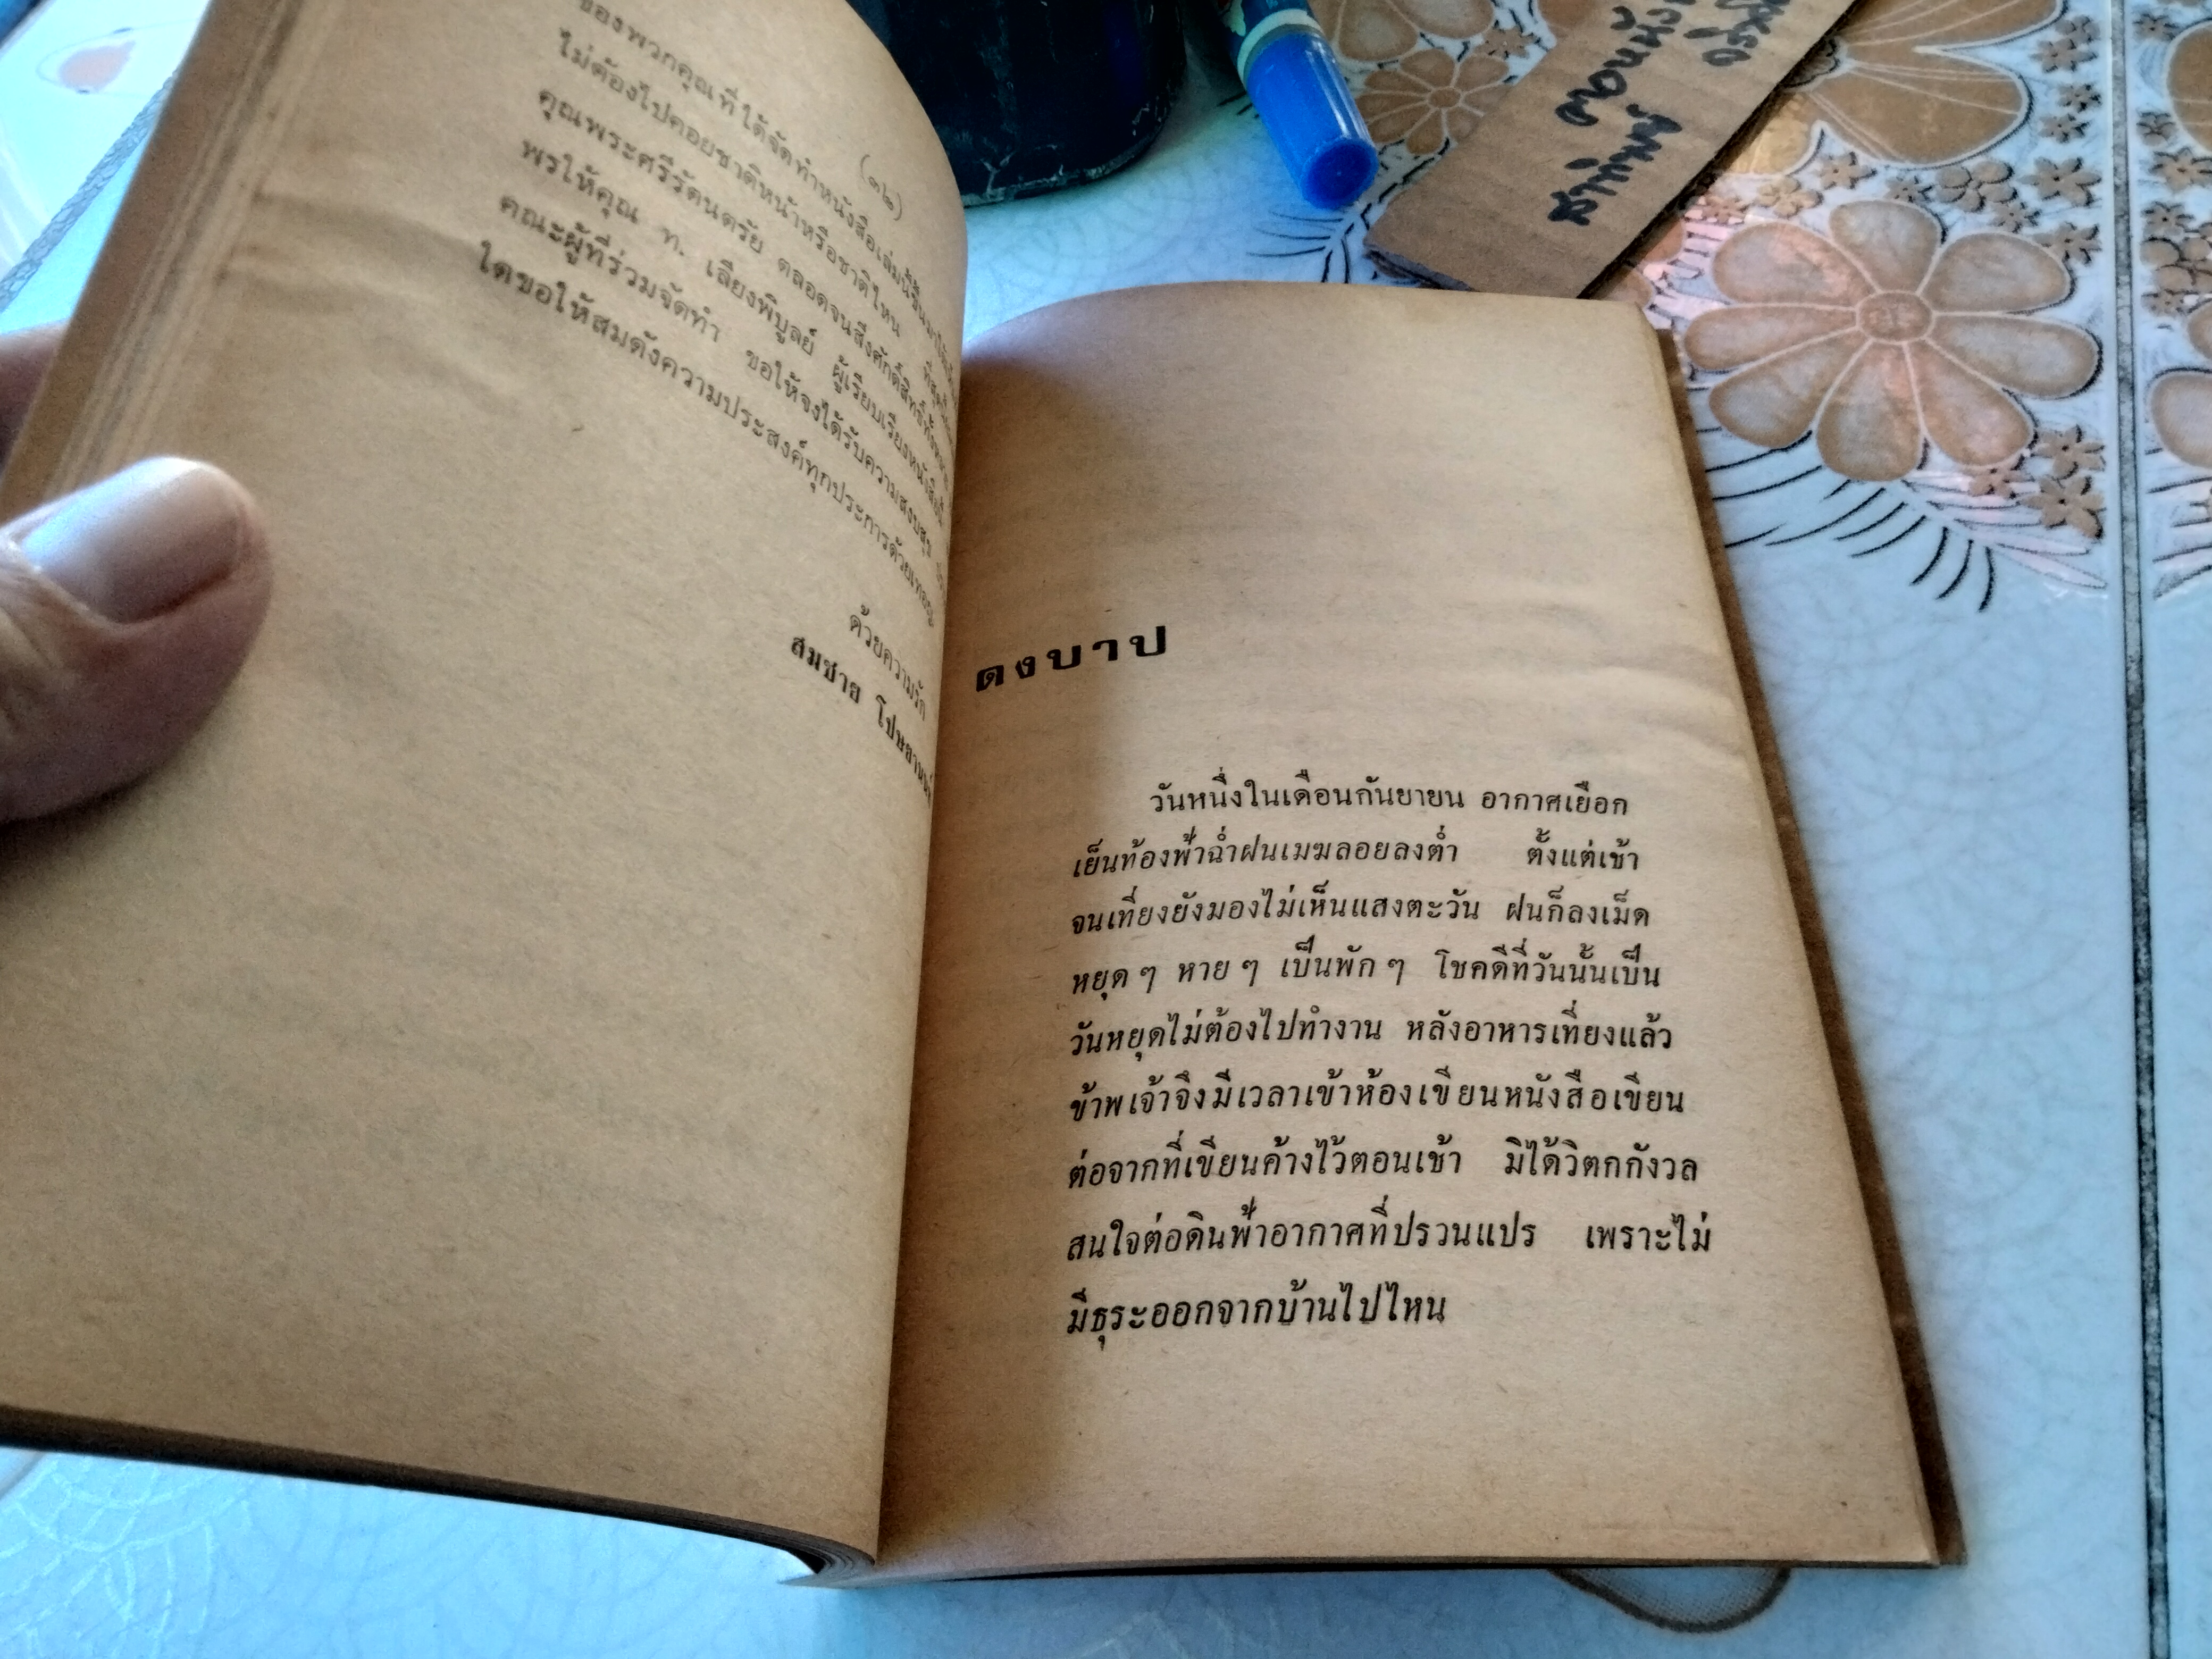 (๓๒)
ของพวกคุณที่ได้จัดทำหนังสือเล่มนี้ขึ้นมา
ไม่ต้องไปคอยชาติหน้าหรือชาติไหน ที่สุดนี้
คุณพระศรีรัตนตรัย ตลอดจนสิ่งศักดิ์สิทธิ์ทั้งหลาย
พรให้คุณ ท. เลียงพิบูลย์ ผู้เรียบเรียงหนังสือนี้
คณะผู้ที่ร่วมจัดทำ ขอให้จงได้รับความสงบสุข
ใดขอให้สมดังความประสงค์ทุกประการด้วยเทอญ
ด้วยความรัก
สมชาย
ดงบาป
วันหนึ่งในเดือนกันยายน อากาศเยือก
เย็นท้องฟ้าฉ่ำฝนเมฆลอยลงต่ำ ตั้งแต่เช้า
จนเที่ยงยังมองไม่เห็นแสงตะวัน ฝนก็ลงเม็ด
หยุด ๆ หาย ๆ เป็นพัก ๆ โชคดีที่วันนั้นเป็น
วันหยุดไม่ต้องไปทำงาน หลังอาหารเที่ยงแล้ว
ข้าพเจ้าจึงมีเวลาเข้าห้องเขียนหนังสือเขียน
ต่อจากที่เขียนค้างไว้ตอนเช้า มิได้วิตกกังวล
สนใจต่อดินฟ้าอากาศที่ปรวนแปร เพราะไม่
มีธุระออกจากบ้านไปไหน